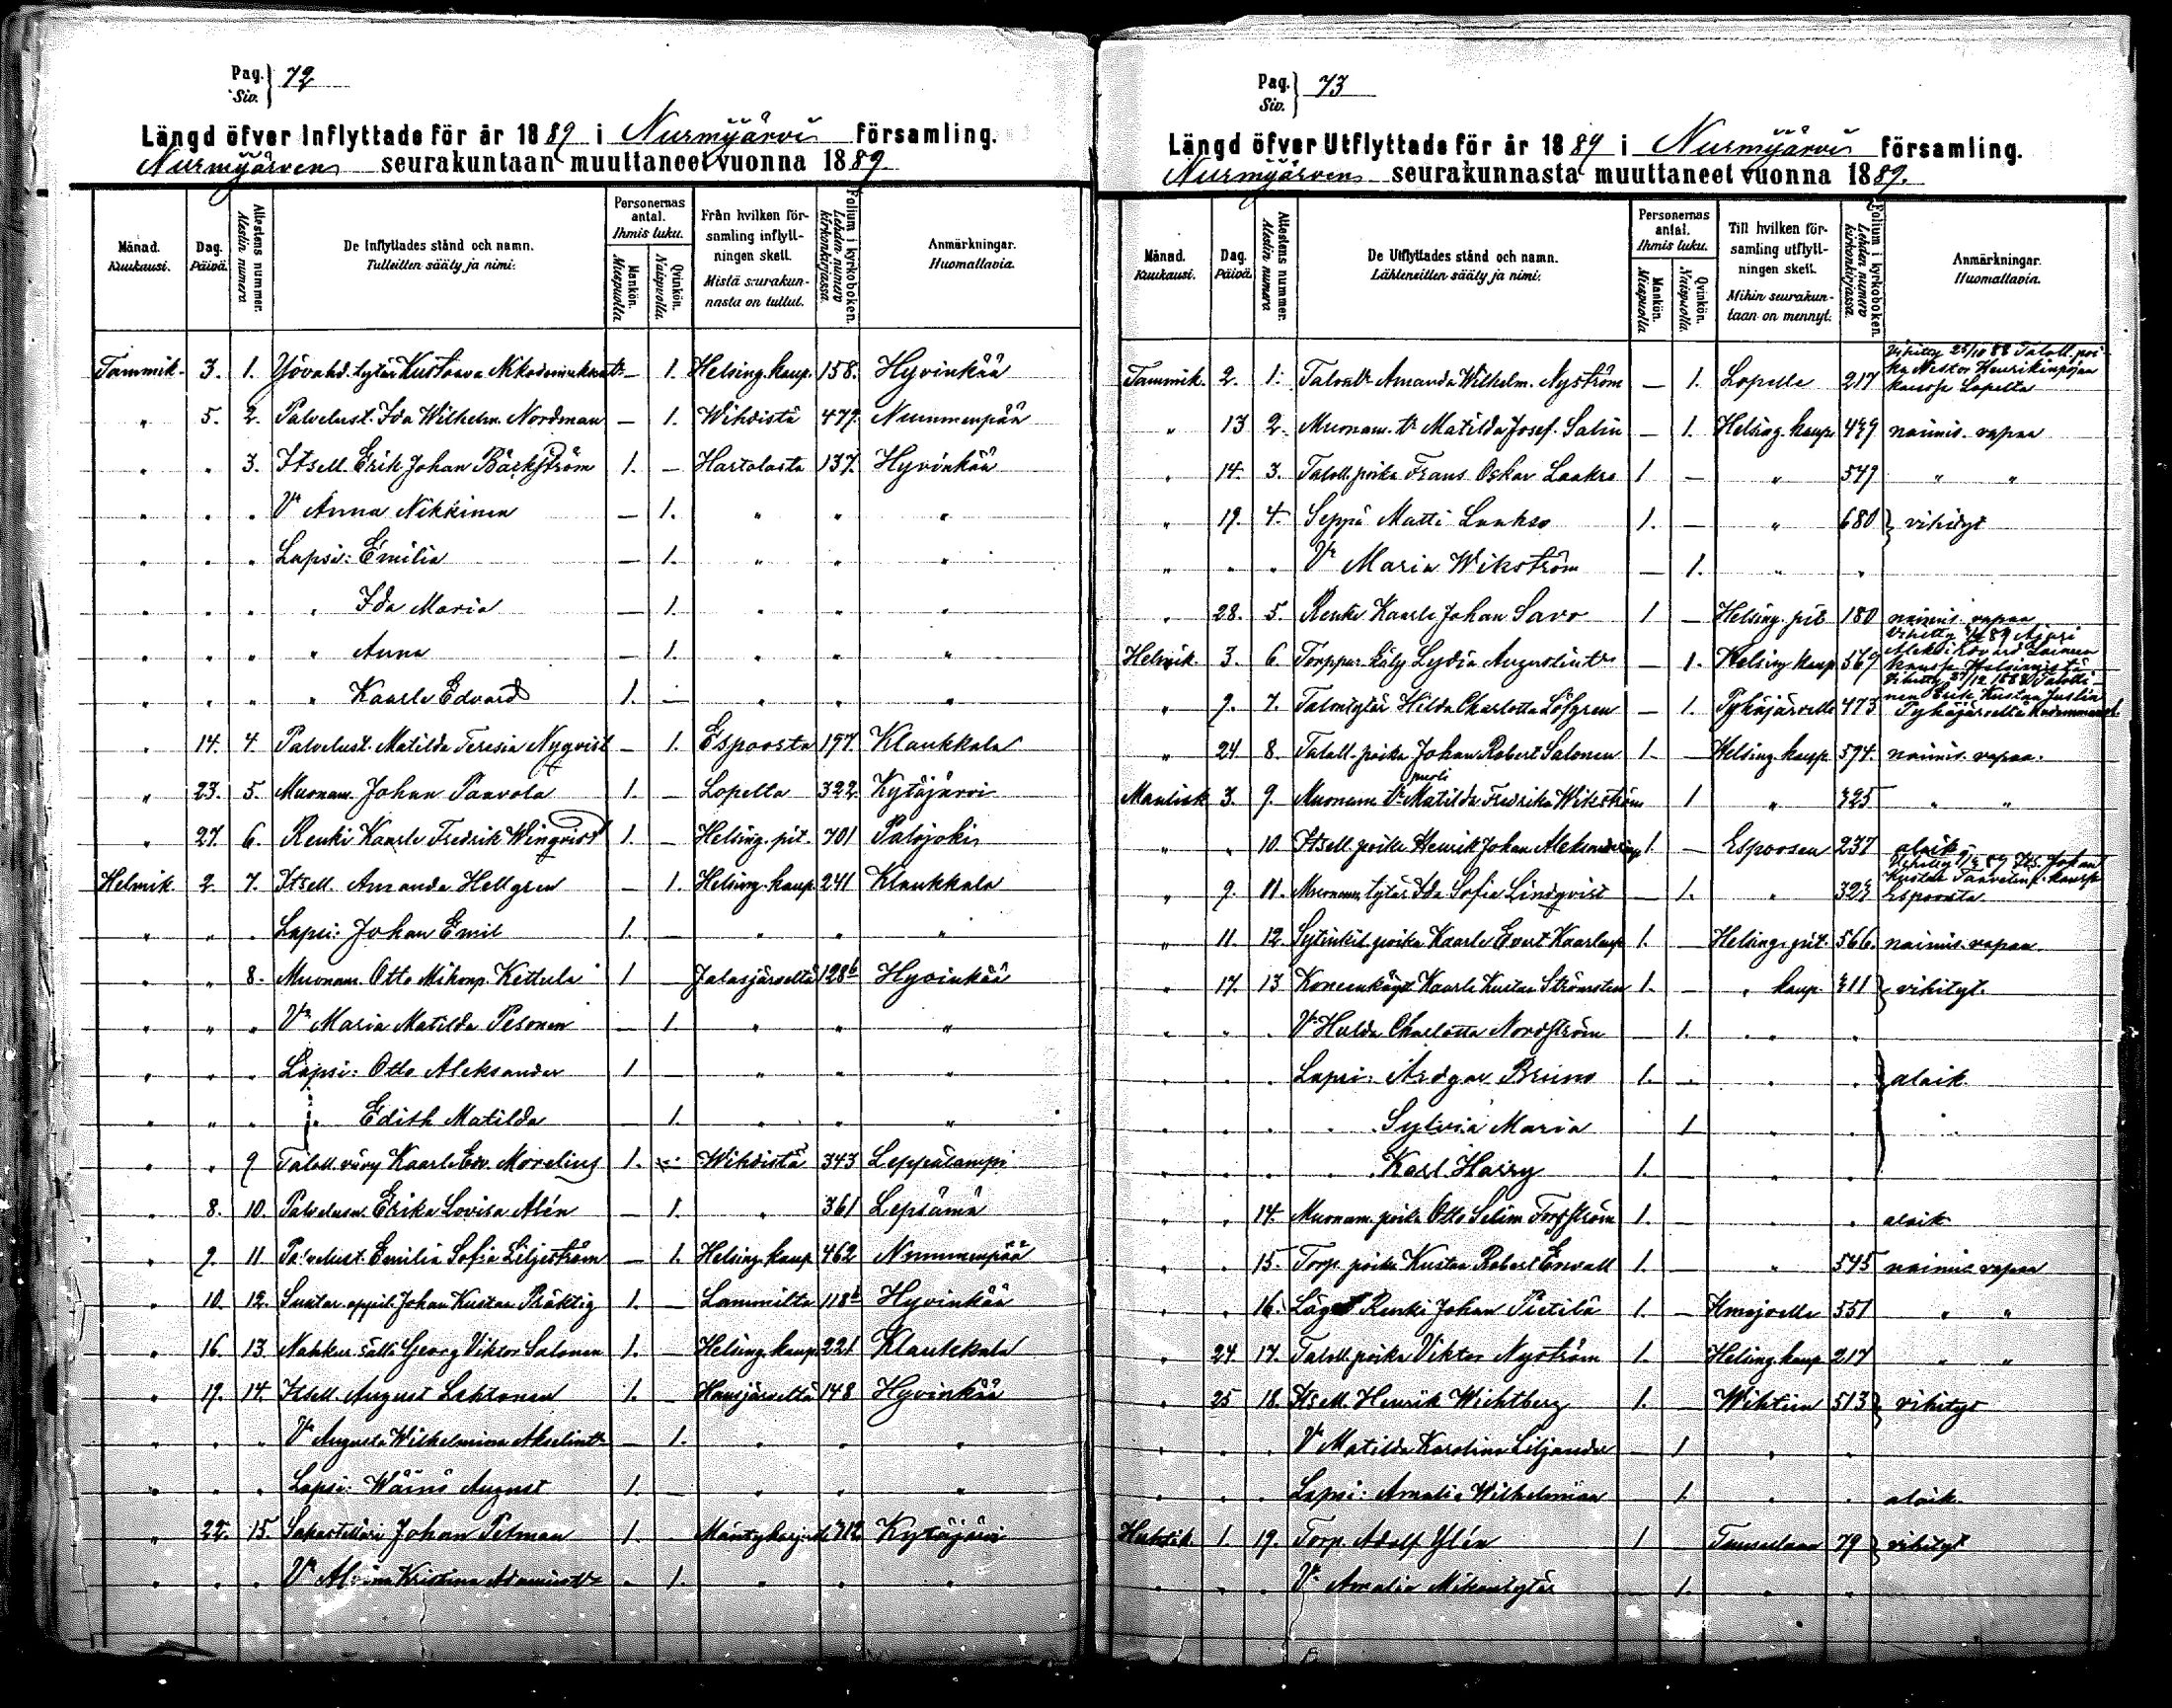 Pag. Siv. } 72
Längd öfver Inflyttade för år 1889 i Nurmijärvi församling.
Nurmijärven seurakuntaan muuttaneet vuonna 1889
Månad. Kuukausi. Dag. Päivä. Attestens nummer. Atestin numero De Inflyttades stånd och namn. Tulleitten sääty ja nimi. Personernas antal. Ihmis luku. Mankön. Miespuolia Qvinkön. Naispuolia. Från hvilken församling inflyttningen skett. Mistä seurakunnasta on tullut. Folium i kyrkoboken. Lehden numero kirkonkirjassa. Anmärkningar. Huomattavia.
Tammik. 3. 1. Kustaava — 1. Helsing. kaup. 158. Hyvinkää
" 5. 2. Palvelust. Ida Wilhelm. Nordman — 1. Wihdistä 479. Nummenpää
" " 3. Itsell. Erik Johan Bäckström 1. — Hartolasta 137. Hyvinkää
" " " Vo Anna Nikkinen — 1. " " "
" " " Lapsi: Emilia — 1. " " "
" " " " Ida Maria — 1. " " "
" " " " Anna — 1. " " "
" " " " Kaarle Edvard 1. — " " "
" 14. 4. Palvelust. Matilda Teresia Nyqvist — 1. Espoosta 197 Klaukkala
" 23. 5. Muonam. Johan Paavola 1. — Lopelta 322. Kytäjärvi
" 27. 6. Renki Kaarle Fredrik Winqvist 1. — Helsing. pit. 701 Palojoki
Helmik. 2. 7. Itsell. Amanda Hellgren — 1. Helsing. kaup. 241 Klaukkala
" " " Lapsi: Johan Emil 1. — " " "
" " 8. Muonam. Otto Mikonp. Kettula 1 — Jalasjärveltä 128b Hyvinkää
" " " Vo Maria Matilda Pesonen — 1. " " "
" " " Lapsi: Otto Aleksander 1 — " " "
" " " " Edith Matilda — 1. " " "
" " 9 Taloll. vävy Kaarle Edv. Morelius 1. — Wihdistä 343 Leppälampi
" 8. 10. Palvelusn. Erika Lovisa Alén — 1. " 361 Lepsämä
" 9. 11. Palvelust. Emilia Sofia Liljeström — 1. Helsing. kaup. 462 Nummenpää
" 10. 12. Suutar. oppil. Johan Kustaa Präktig 1. — Lammilta 118b Hyvinkää
" 16. 13. Nahkur. sälli Georg Viktor Salonen 1. — Helsing. kaup. 221 Klaukkala
" 19. 14. Itsell. August Lehtonen 1. — Hausjärveltä 148 Hyvinkää
" " " Vo Augusta Wilhelmina Akselintr — 1. " " "
" " " Lapsi: Wäinö August 1. — " " "
" 22. 15. Johan Petman 1. — 712 Kytäjärvi
" " " Vo Kristina — 1. " " "
Pag. Siv. } 73
Längd öfver Utflyttade för år 1889 i Nurmijärvi församling.
Nurmijärven seurakunnasta muuttaneet vuonna 1889.
Månad. Kuukausi. Dag. Päivä. Attestens nummer. Atestin numero De Utflyttades stånd och namn. Lähteneitten sääty ja nimi. Personernas antal. Ihmis luku. Mankön. Miespuolia Qvinkön. Naispuolia. Till hvilken församling utflyttningen skett. Mihin seurakuntaan on mennyt. Folium i kyrkoboken. Lehden numero kirkonkirjassa. Anmärkningar. Huomattavia.
Tammik. 2. 1. Amanda Wilhelm. Nyström — 1. Lopelle 217 Vihitty 28/10 88 Taloll. poika Nestor Henrikinpojan kanssa Lopelta
" 13 2. Muonam. tr Matilda Josef. Salin — 1. Helsing. kaup. 449 naimis. vapaa
" 14. 3. Taloll. poika Frans Oskar Laakso 1 — " 549 " "
" 19. 4. Seppä Matti Laakso 1. — " 680 } vihityt
" " " Vo Maria Wikström — 1. " "
" 28. 5. Renki Kaarle Johan Savo 1 — Helsing. pit. 180 naimis. vapaa
Helmik. 3. 6. Lydia Augustintr — 1. Helsing. kaup. 569
" 9. 7. Talontytär Hilda Charlotta Löfgren — 1. Pyhäjärvelle 473
" 24 8. Taloll. poika Johan Robert Salonen 1. — Helsing. kaup. 594. naimis. vapaa.
Maalisk. 3. 9. Muonam. puoli Matilda Fredrika Wikström 1 " 325 " "
" " 10. Itsell. poika Henrik Johan 1. — Espoosen 237 alaik.
" 9. 11. Muonam. tytär Ida Sofia Lindqvist — 1. " Espoosta
" 11. 12. poika Kaarle Evert Kaarlenp 1. — Helsing. pit. 566. naimis. vapaa.
" 17. 13 Koneenkäyt Kaarle Kustaa Strömsten 1. — " kaup. 311 } vihityt.
" " " Vo Hulda Charlotta Nordström — 1. " "
" " " Lapsi: Ardgar Bruno 1. — " " } alaik.
" " " " Sylvia Maria 1 " "
" " " " Karl Harry 1. " "
" " 14. Muonam. poika Otto Selim Torsström 1. — " " alaik
" " 15. Torp. poika Kustaa Robert Envall 1. — " 545 naimis. vapaa
" " 16. Renki Johan Pietilä 1. — 551 " "
" 24 17. Taloll. poika Viktor Nyström 1. — Helsing. kaup. 217 " "
" 25 18. Itsell. Henrik Wichtberg 1. — Wihtiin 513 } vihityt
" " " Vo Matilda Karolina Liljander — 1 " "
" " " Lapsi: Amalia Wilhelmina 1. " " alaik.
Huhtik. 1. 19. Torp. Adolf Ylén 1 — Tuusulaan 79 } vihityt
" " " Vo Amalia Mikontytär — 1. " "